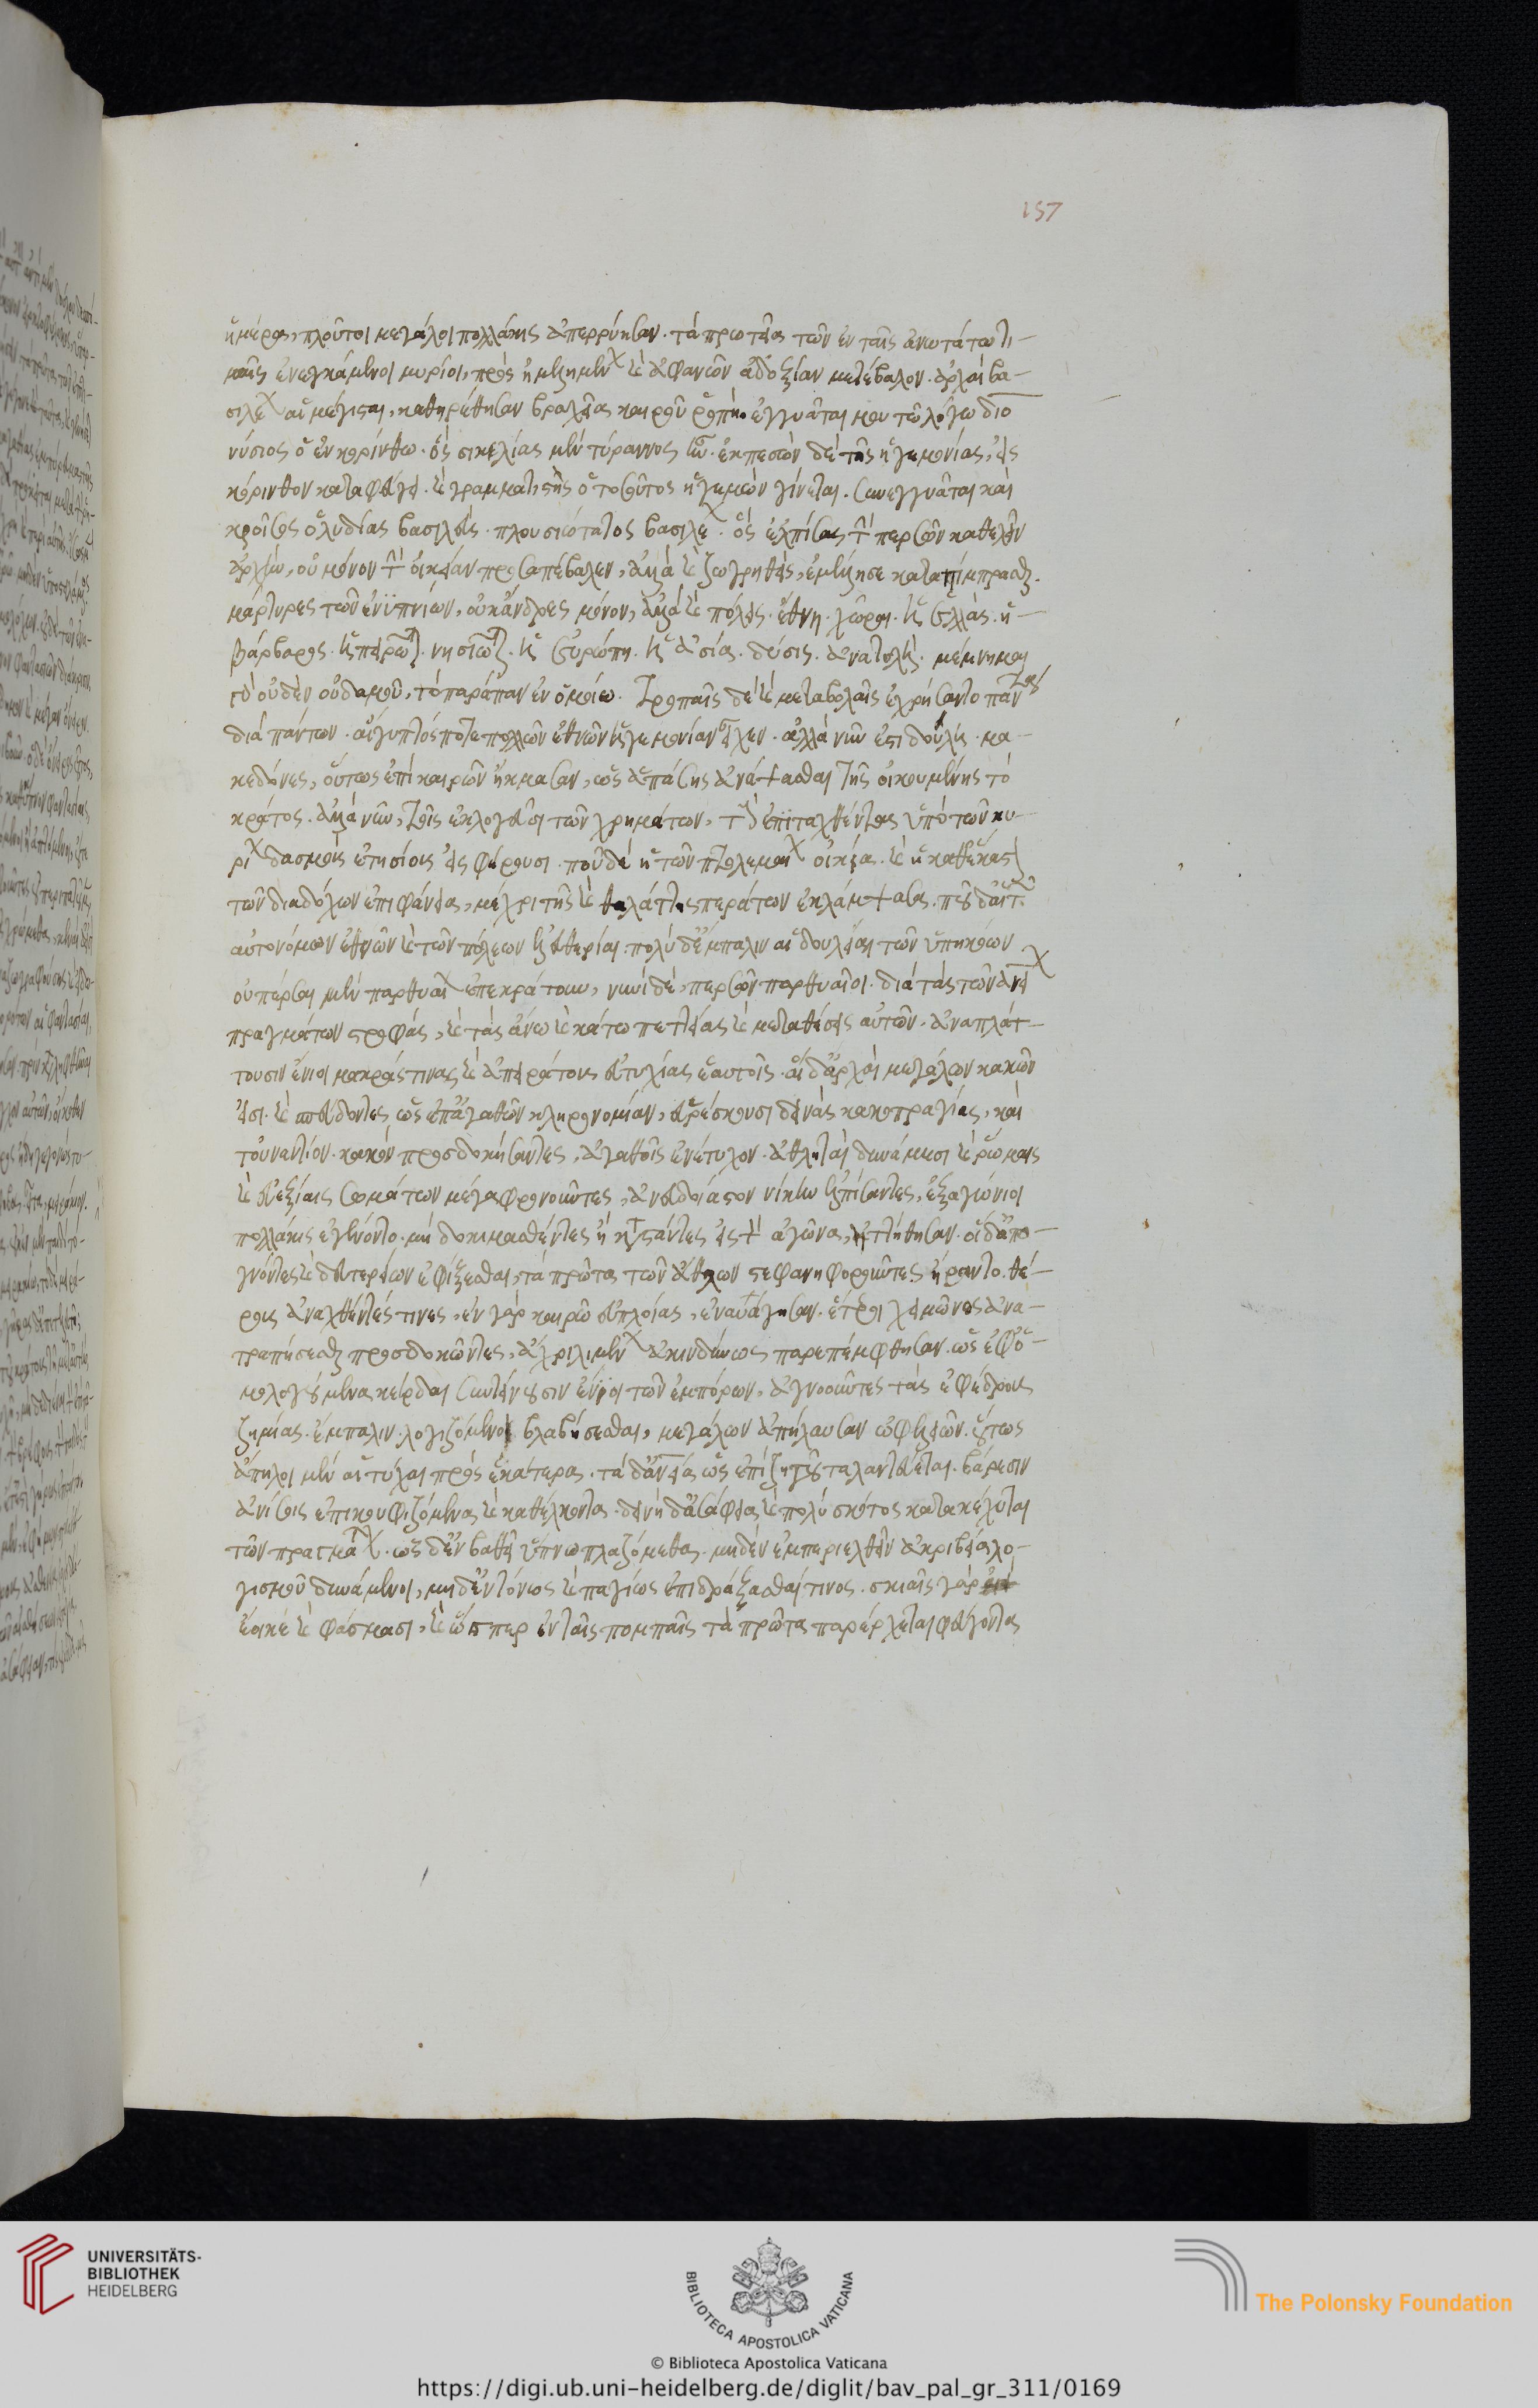 157
ἡμέρα, πλοῦτοι μεγάλοι πολλάκις ἀπερρύησαν. τὰ πρωτεῖα τῶν ἐν ταῖς ἀνωτάτω τι-
μαῖς ἐνεγκάμενοι μυρίοι, πρὸς ἠμελημένων καὶ ἀφανῶν ἀδοξίαν μετέβαλον. ἀρχαὶ βα-
σιλέων αἱ μέγισται, καθῃρέθησαν βραχείας καιροῦ ῥοπῇ. ἐγγυᾶται μου τὸν λόγον διο
νύσιος ὁ ἐν κορίνθω. ὃς σικελίας μὲν τύραννος ἦν. ἐκπεσὼν δὲ τῆς ἡγεμονίας, εἰς
κόρινθον καταφεύγει. καὶ γραμματιστὴς ὁ τοσοῦτος ἡγεμὼν γίνεται. συνεγγυᾶται καὶ
κροῖσος ὁ λυδίας βασιλεὺς. πλουσιώτατος βασιλέων. ὃς ἐλπίσας τὴν περσῶν καθελεῖν
ἀρχὴν, οὐ μόνον τὴν οἰκείαν προσαπέβαλεν, ἀλλὰ καὶ ζωγρηθεὶς, ἐμέλλησε καταπίμπρασθαι.
μάρτυρες τῶν ἐνϋπνίων, οὐκ ἄνδρες μόνον, ἀλλὰ καὶ πόλεις. ἔθνη. χῶραι. ἡ ἑλλὰς. ἡ
βάρβαρος. ἠπειρῶται. νησιῶται. ἡ εὐρώπη. ἡ ἀσία. δύσις. ἀνατολή. μέμνηκε
τὸ οὐδὲν οὐδαμοῦ, τὸ παράπαν ἐν ὁμοίω. τροπαῖς δὲ καὶ μεταβολαῖς ἐχρήσαντο πάντα
διὰ πάντων. αἴγυπτός ποτε πολλῶν ἐθνῶν ἡγεμονίαν εἶχεν. ἀλλὰ νῦν ἐστι δούλη. μα-
κεδόνες, οὕτως ἐπὶ καιρῶν ἤκμασαν, ὡς ἁπάσης ἀνάψασθαι τῆς οἰκουμένης τὸ
κράτος. ἀλλὰ νῦν, τοῖς ἐκλογεῦσι τῶν χρημάτων, τοὺς ἐπιταχθέντας ὑπὸ τῶν κυ-
ρίων δασμοὺς ἐτησίους εἰσφέρουσι. ποῦ δὲ ἡ τῶν πτολεμαίων οἰκία. καὶ ἡ καθ' ἕκαστον
τῶν διαδόχων ἐπιφάνεια, μέχρι γῆς καὶ θαλάττης περάτων ἐκλάμψασα. ποῦ δ' αἱ τῶν
αὐτονόμων ἐθνῶν καὶ τῶν πόλεων ἐλευθερίαι. πολὺ δ' ἔμπαλιν αἱ δουλεῖαι τῶν ὑπηκόων
οὐ πέρσαι μὲν παρθυαίων ἐπεκράτουν, νυνὶ δὲ, περσῶν παρθυαῖοι. διὰ τὰς τῶν ἀνθρωπείων
πραγμάτων στροφάς, καὶ τὰς ἄνω καὶ κάτω πεττείας καὶ μεταθέσεις αὐτῶν. ἀναπλάτ-
τουσιν ἔνιοι μακράς τινας καὶ ἀπεράτους εὐτυχίας ἑαυτοῖς. αἱ δ' ἀρχαὶ μεγάλων κακῶν
εἰσι. καὶ σπεύδοντες ὡς ἐπ' ἀγαθῶν κληρονομίαν, εὑρίσκουσι δεινὰς κακοπραγίας, καὶ
τοὐναντίον. κακὸν προσδοκήσαντες, ἀγαθοῖς ἐνέτυχον. ἀθληταὶ δυνάμεσι καὶ ῥώμαις
καὶ εὐεξίαις σωμάτων μέγα φρονοῦντες, ἀνενδοίαστον νίκην ἐλπίσαντες, ἐξαγώνιοι
πολλάκις ἐγένοντο. μὴ δοκιμασθέντες ἢ καταστάντες εἰς τὸν ἀγῶνα, ἡττήθησαν. οἱ δ' ἀπο-
γνόντες καὶ δευτερείων ἐφίξεσθαι, τὰ πρῶτα τῶν ἄθλων στεφανηφοροῦντες ἤραντο. θέ-
ρους ἀναχθέντές τινες, ἐν γὰρ καιρῶ εὐπλοίας, ἐναυάγησαν. ἕτεροι χειμῶνος ἀνα-
τραπήσεσθαι προσδοκῶντες, ἄχρι λιμένων ἀκινδύνως παρεπέμφθησαν. ὡς ἐφ' ὁ-
μολογούμενα κέρδη συντείνουσιν ἔνιοι τῶν ἐμπόρων, ἀγνοοῦντες τὰς ἐφέδρους
ζημίας. ἔμπαλιν. λογιζόμενοι βλαβήσεσθαι, μεγάλων ἀπήλαυσαν ὠφελειῶν. οὕτως
ἄδηλοι μὲν αἱ τύχαι πρὸς ἑκάτερα. τὰ δ' ἀνθρώπεια ὡς ἐπὶ ζυγοῦ ταλαντεύεται. βάρεσιν
ἀνίσοις ἐπικουφιζόμενα καὶ καθέλκοντα. δεινὴ δ' ἀσάφεια καὶ πολὺ σκότος κατακέχυται
τῶν πραγμάτων. ὡς δ' ἐν βαθεῖ ὕπνω πλαζόμεθα. μηδὲν ἐμπεριελθεῖν ἀκριβείᾳ λο-
γισμοῦ δυνάμενοι, μηδ' εὐτόνως καὶ παγίως ἐπιδράξασθαί τινος. σκιαῖς γὰρ
ἔοικέ καὶ φάσμασι, καὶ ὥσπερ ἐν ταῖς πομπαῖς τὰ πρῶτα παρέρχεται φεύγοντα
UNIVERSITÄTS-
BIBLIOTHEK
HEIDELBERG
BIBLIOTECA APOSTOLICA VATICANA
The Polonsky Foundation
© Biblioteca Apostolica Vaticana
https://digi.ub.uni-heidelberg.de/diglit/bav_pal_gr_311/0169